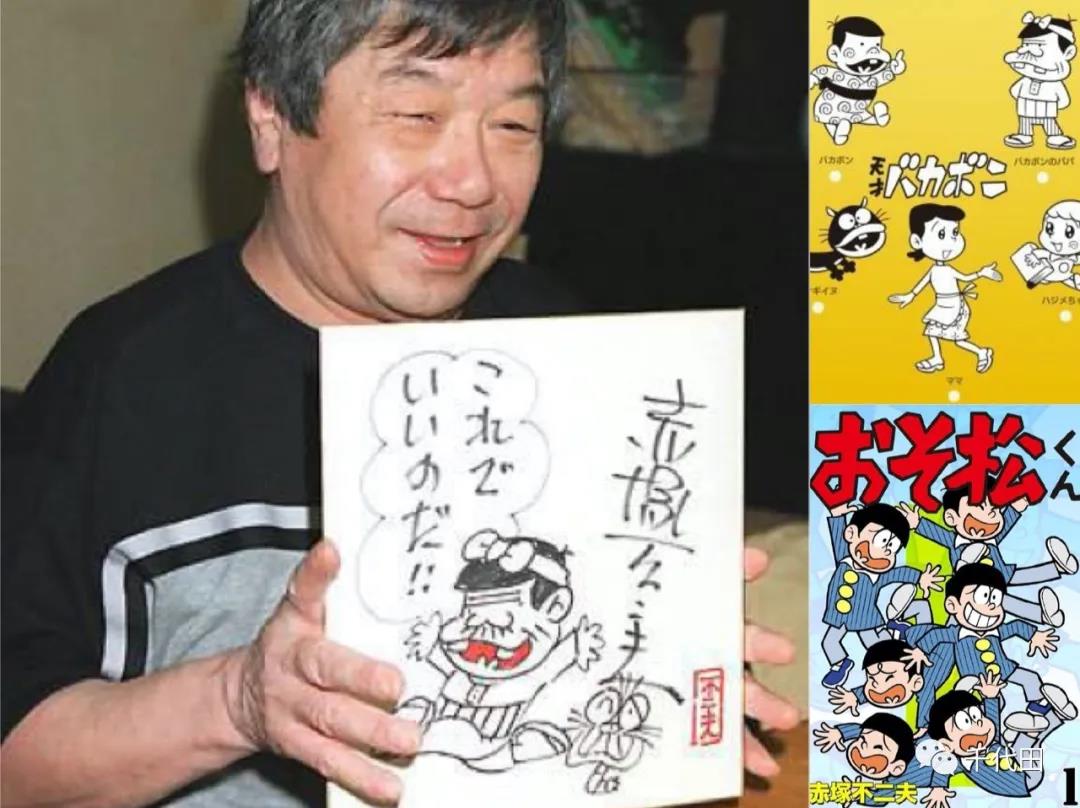 これで
いいのだ!!
赤塚不二夫
不二夫
バカボン
バカボンのパパ
天才バカボン
ギイヌ
ハジメちゃ
ママ
おそ松くん
赤塚不二夫
1
千代田